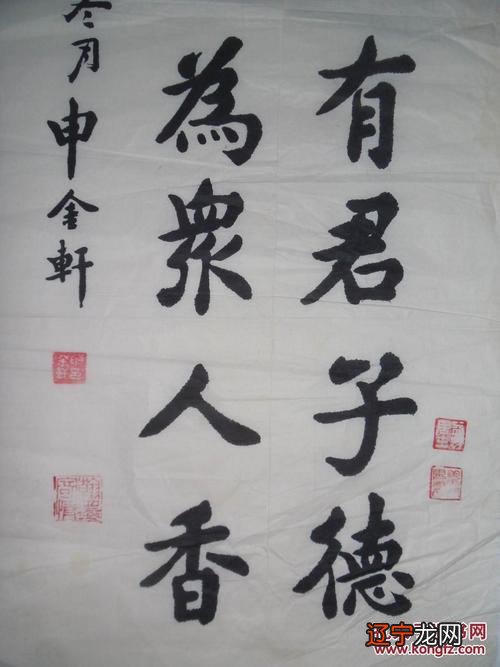 有君子德
為眾人香
冬月申金軒
书网
辽宁龙网
www.kongfz.com